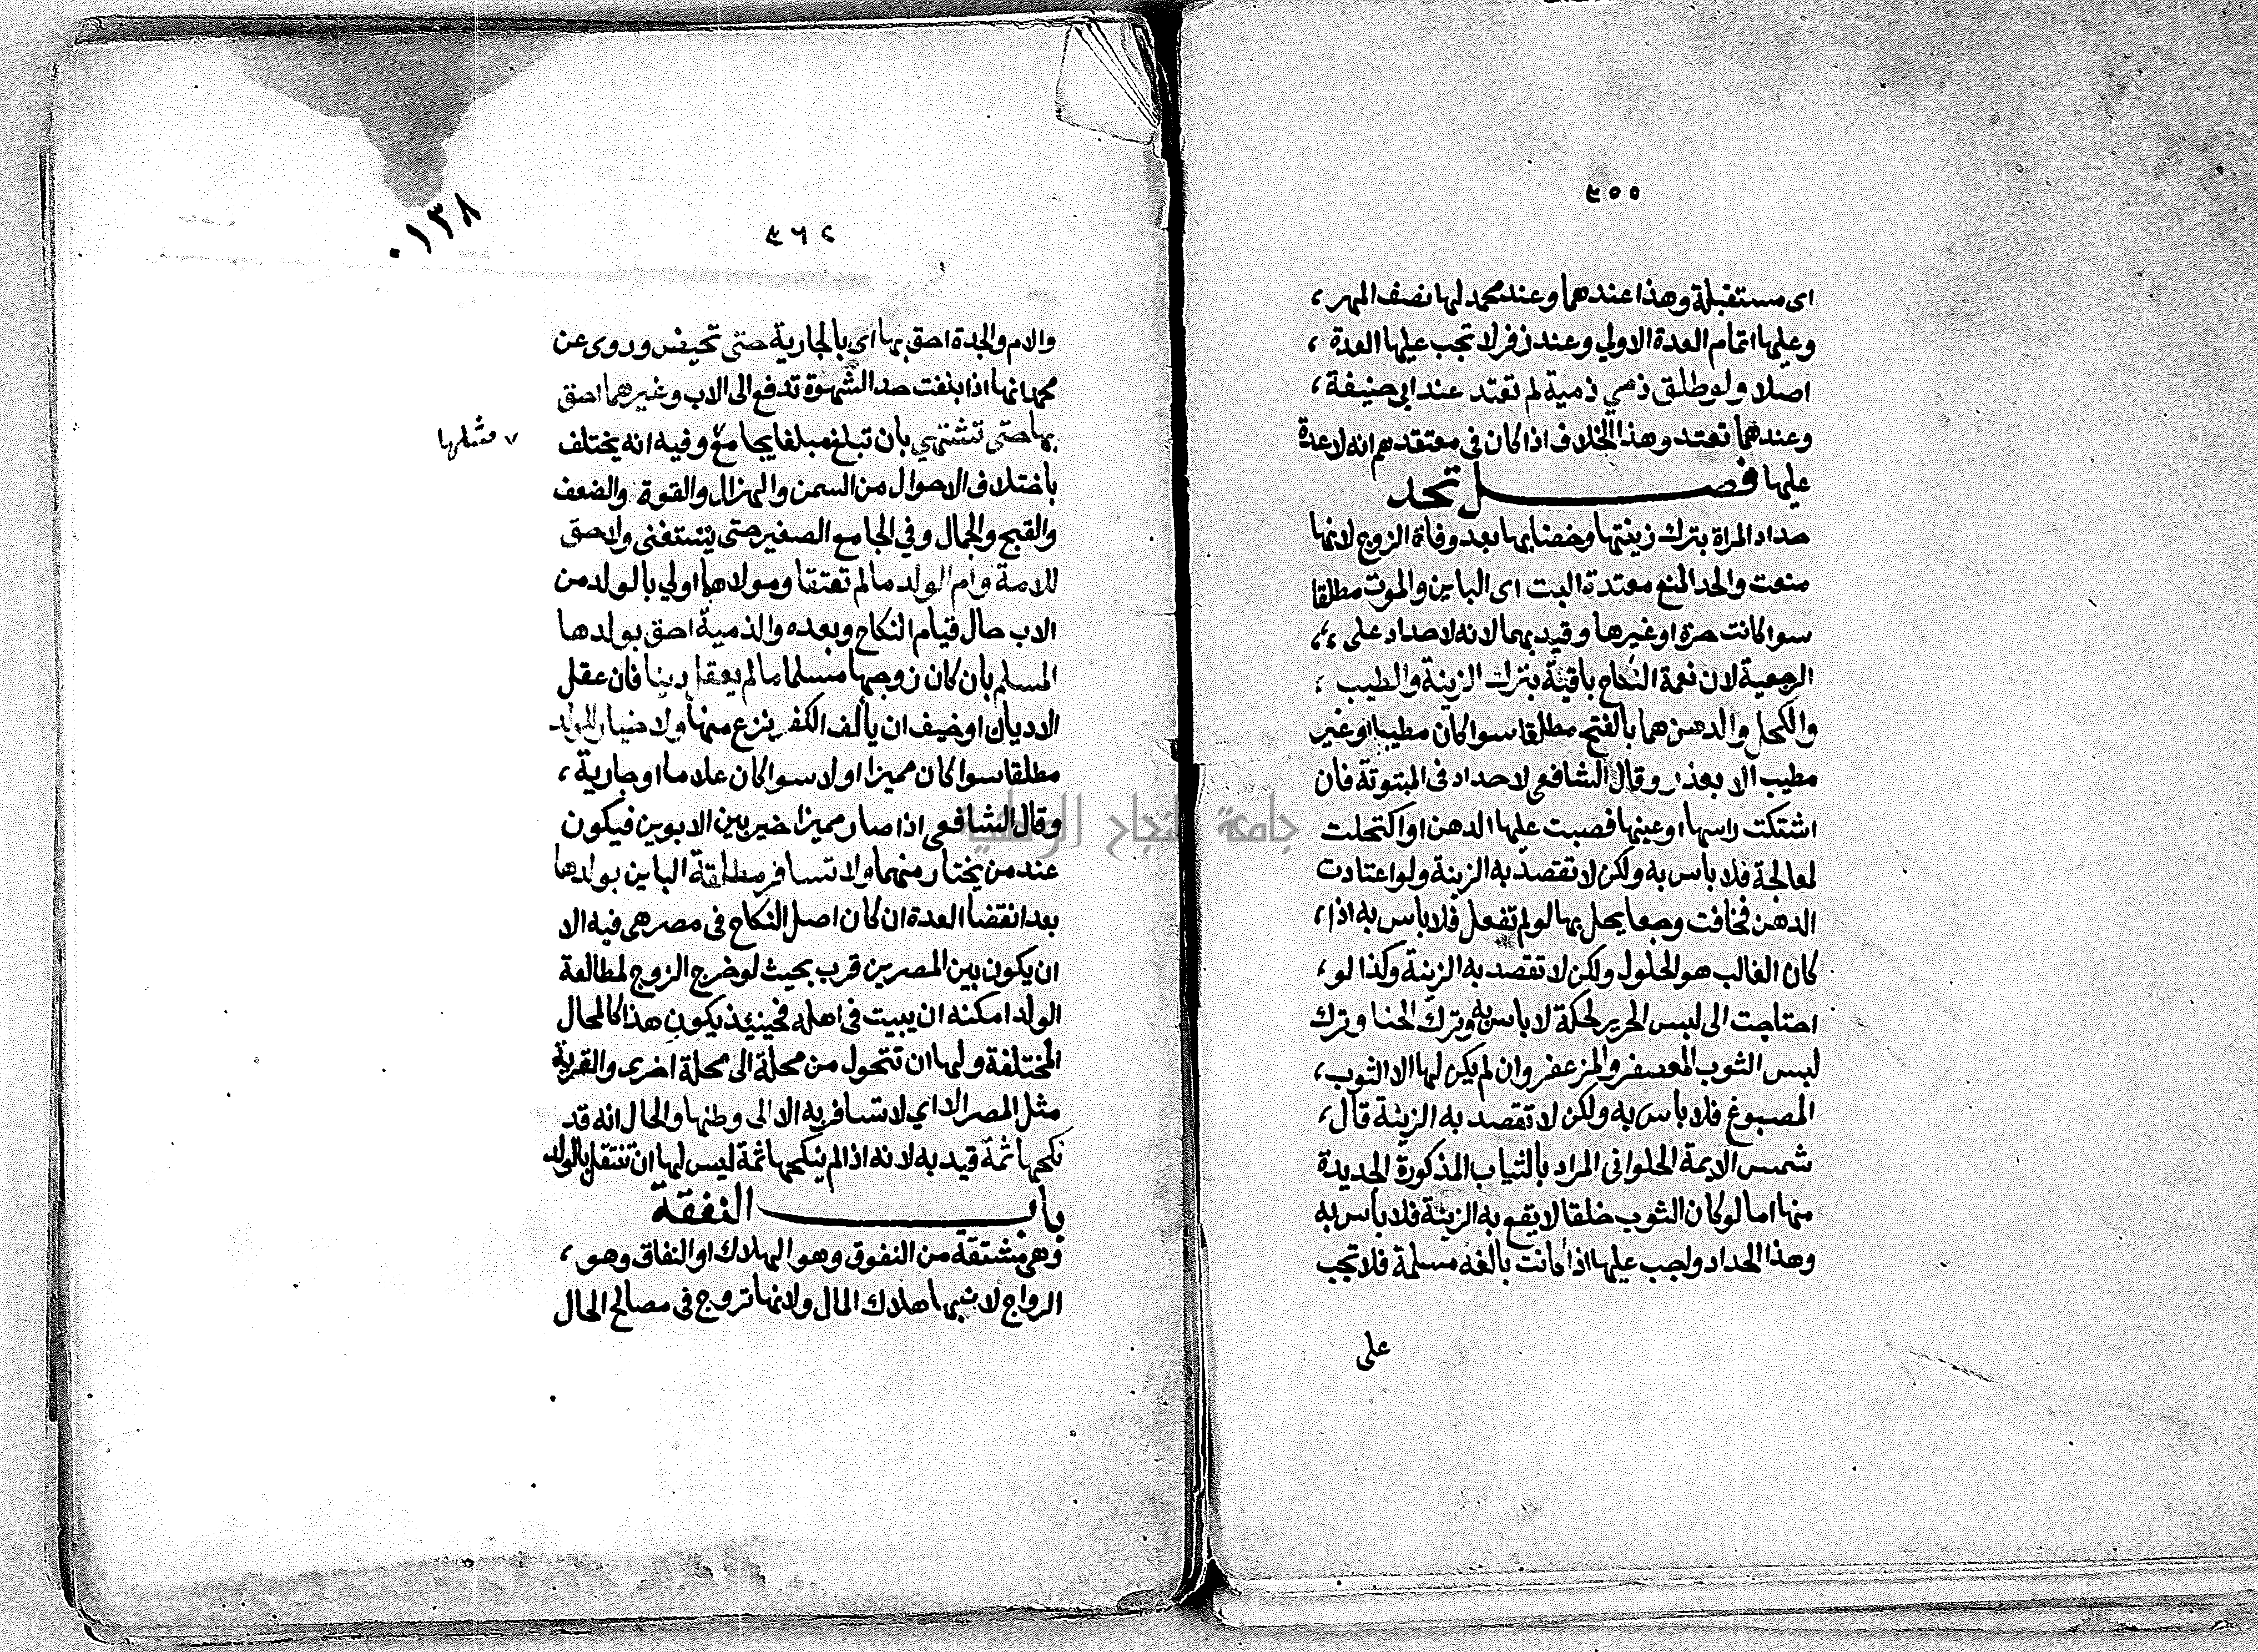 ٤٥٥
اى مستقبلة وهذا عندهما وعند محمد لها نصف المهر،
وعليها اتمام العدة الاولي وعند زفر لا تجب عليها العدة،
اصلا ولو طلق ذمي ذمية لم تعتد عند ابى حنيفة،
وعندهما تعتد وهذا الخلاف اذا كان فى معتقدهم انه لا عدة
عليها فصل تحد
حداد المراة بترك زينتها وخضابها بعد وفاة الزوج لانها
منعت والحد المنع معتدة البت اى الباين والموت مطلقا
سوا كانت حرة او غيرها وقيد بهما لانه لا حداد على
الرجعية لان نعمة النكاح باقية بترك الزينة والطيب
والكحل والدهن هما بالفتح مطلقا سوا كان مطيبا او غير
مطيب الا بعذر وقال الشافعى لا حداد فى المبتوتة فان
اشتكت راسها او عينها فصبت عليها الدهن او اكتحلت
لمعالجة فلا باس به ولكن لا تقصد به الزينة ولو اعتادت
الدهن فخافت وجعا يحل بها لو لم تفعل فلا باس به اذا،
كان الغالب هو الحلول ولكن لا تقصد به الزينة وكذا لو،
احتاجت الى لبس الحرير لحكة لا باس به وترك الحنا وترك
لبس الثوب المعصفر والمزعفر وان لم يكن لها الا الثوب،
المصبوغ فلا باس به ولكن لا تقصد به الزينة قال،
شمس الايمة الحلوانى المراد بالثياب المذكورة الجديدة
منها اما لو كان الثوب خلقا لا يقع به الزينة فلا باس به
وهذا الحداد واجب عليها اذا كانت بالغه مسلمة فلا تجب
على
٠١٣٨
والام والجدة احق بها اى بالجارية حتى تحيض وروى عن
محمد انها اذا بلغت حد الشهوة تدفع الى الاب وغيرهما احق
بها حتى تشتهي بان تبلغ مبلغا يجامع وفيه انه يختلف
٧ مثلها
باختلاف الاحوال من السمن والهزال والقوة والضعف
والقبح والجمال وفي الجامع الصغير حتى يستغنى ولا حق
للامة وام الولد ما لم تعتقا ومولاهما اولي بالولد من
الاب حال قيام النكاح وبعده والذمية احق بولدها
المسلم بان كان زوجها مسلما ما لم يعقل دينا فان عقل
الاديان او خيف ان يالف الكفر ينزع منها ولا خيار للولد
مطلقا سوا كان مميزا اولا سوا كان غلاما او جارية،
وقال الشافعى اذا صار مميزا خير بين الابوين فيكون
عند من يختار منهما ولا تسافر مطلقة الباين بولدها
بعد انقضا العدة ان كان اصل النكاح فى مصر هى فيه الا
ان يكون بين المصرين قرب بحيث لو خرج الزوج لمطالعة
الولد امكنه ان يبيت فى اهله فحينيذ يكون هذا كالمحال
المختلفة ولها ان تتحول من محلة الى محلة اخرى والقرية
مثل المصر الا اي لا تسافر به الا الى وطنها والحال انه قد
نكحها ثمة قيد به لانه اذا لم ينكحها ثمة ليس لها ان تنتقل بالولد
باب النفقة
وهى مشتقة من النفوق وهو الهلاك او النفاق وهو،
الرواج لان بها هلاك المال ولانها تروج فى مصالح الحال
جامعة النجاح الوطنية